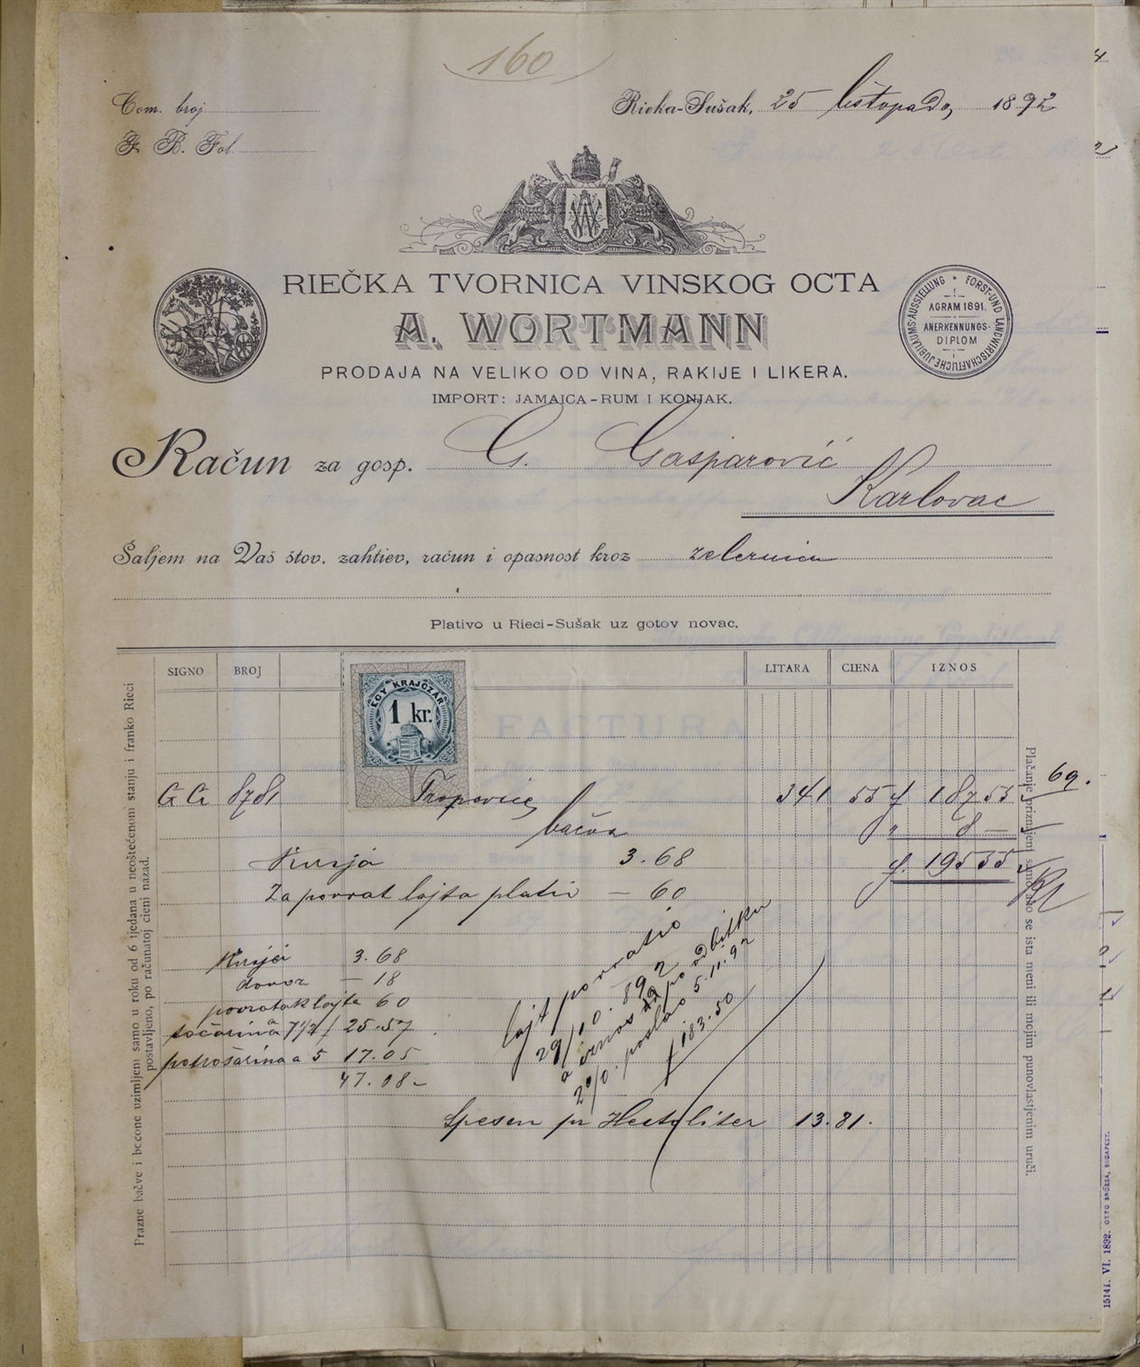 160
Com. broj
F. B. Fol.
Rieka-Sušak, 25 listopada, 1892
RIEČKA TVORNICA VINSKOG OCTA
A. WORTMANN
PRODAJA NA VELIKO OD VINA, RAKIJE I LIKERA.
IMPORT: JAMAICA-RUM I KONJAK.
FORST- UND LANDWIRTSCHAFTLICHE JUBILÄUMS-AUSSTELLUNG
AGRAM 1891.
ANERKENNUNGS-
DIPLOM
Račun za gosp. G. Gasparović
Karlovac
Šaljem na Vaš štov. zahtiev, račun i opasnost kroz
Plativo u Rieci-Sušak uz gotov novac.
SIGNO BROJ LITARA CIENA IZNOS
EGY KRAJCZÁR
1 kr.
FACTURA
G G 8781 341 55 f 187 55 69.
bačva " 8 —
3.68 f. 195 55
Za povrat lajta platio — 60
3.68
dovoz — 18
povratak lajta 60
točarina a 7½ / 25.57
potrošarina a 5 17.05
47.08 -
lajt povratio
29/10. 892
a iznos po odbitku
2% poslao 5.11.92
f 183.50
Spesen pr Hectoliter 13.81.
Prazne bačve i boccone uzimljem samo u roku od 6 tjedana u neoštećenom stanju i franko Rieci
postavljeno, po računatoj cieni nazad.
Plaćanje priznajem samo ako se ista meni ili mojim punovlastjenim uruči.
15141. VI. 1892. OTTO BRÓZSA, BUDAPEST.